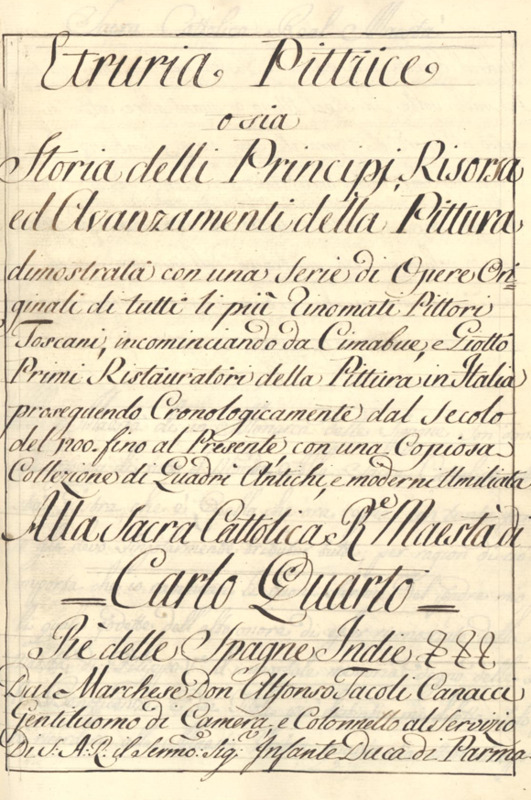 Etruria Pittrice
o sia
Storia delli Principj, Risorsa
ed Avanzamenti della Pittura
dimostrata con una serie di Opere Ori=
ginali di tutti li più rinomati Pittori
Toscani, incominciando da Cimabue, e Giotto
Primi Ristauratori della Pittura in Italia
proseguendo Cronologicamente dal secolo
del 1200. fino al Presente, con una Copiosa
Collezione di Quadri Antichi, e moderni Umiliata
Alla Sacra Cattolica Rе Maestà di
= Carlo Quarto =
Rè delle Spagne Indie &&&
Dal Marchese Don Alfonso Tacoli Canacci
Gentiluomo di Camera, e Colonnello al Servizio
Di S: A: R: il Sermo: Sigr: Infante Duca di Parma